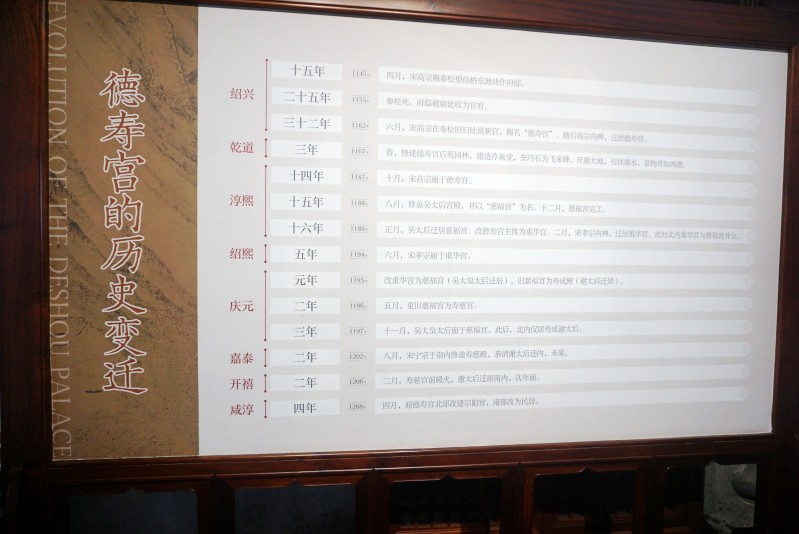 德寿宫的历史变迁
EVOLUTION OF THE DESHOU PALACE
绍兴
十五年 1145年 四月，宋高宗赐秦桧望仙桥东地块作府邸。
二十五年 1155年 秦桧死。府邸被朝廷收为官有。
三十二年 1162年 六月，宋高宗在秦桧府旧址筑新宫，赐名“德寿宫”。随后高宗内禅，迁居德寿宫。
乾道
三年 1167年 春，修建德寿宫后苑园林，建造冷泉堂，垒巧石为飞来峰，开展大池，引注湖水，景物并如西湖。
淳熙
十四年 1187年 十月，宋高宗崩于德寿宫。
十五年 1188年 八月，修盖吴太后宫殿，并以“慈福宫”为名。十二月，慈福宫完工。
十六年 1189年 正月，吴太后迁居慈福宫。改德寿宫主体为重华宫。二月，宋孝宗内禅，迁居重华宫。此时北内重华宫与慈福宫并立。
绍熙
五年 1194年 六月，宋孝宗崩于重华宫。
庆元
元年 1195年 改重华宫为慈福宫（吴太皇太后迁居），旧慈福宫为寿成殿（谢太后迁居）。
二年 1196年 五月，更旧慈福宫为寿慈宫。
三年 1197年 十一月，吴太皇太后崩于慈福宫。此后，北内仅居寿成谢太后。
嘉泰
二年 1202年 八月，宋宁宗于南内修盖寿慈殿，恭请谢太后还内，未果。
开禧
二年 1206年 二月，寿慈宫前殿火。谢太后迁居南内，次年崩。
咸淳
四年 1268年 四月，原德寿宫北部改建宗阳宫，南部改为民居。